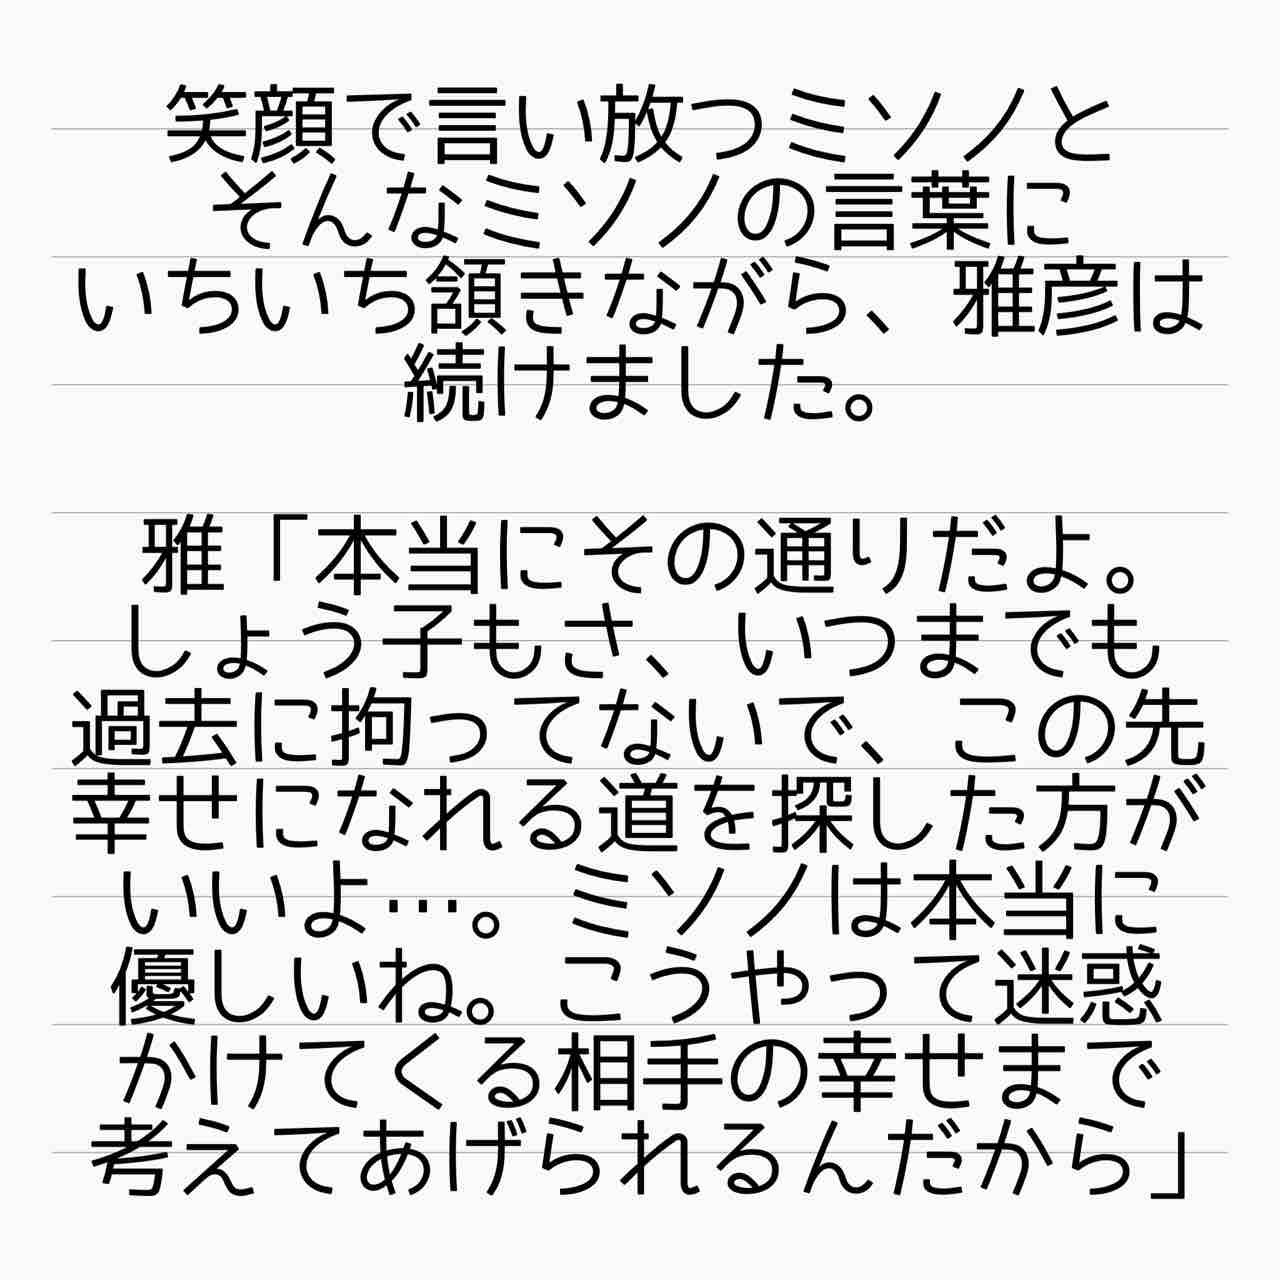 笑顔で言い放つミソノと
そんなミソノの言葉に
いちいち頷きながら、雅彦は
続けました。
雅「本当にその通りだよ。
しょう子もさ、いつまでも
過去に拘ってないで、この先
幸せになれる道を探した方が
いいよ…。ミソノは本当に
優しいね。こうやって迷惑
かけてくる相手の幸せまで
考えてあげられるんだから」